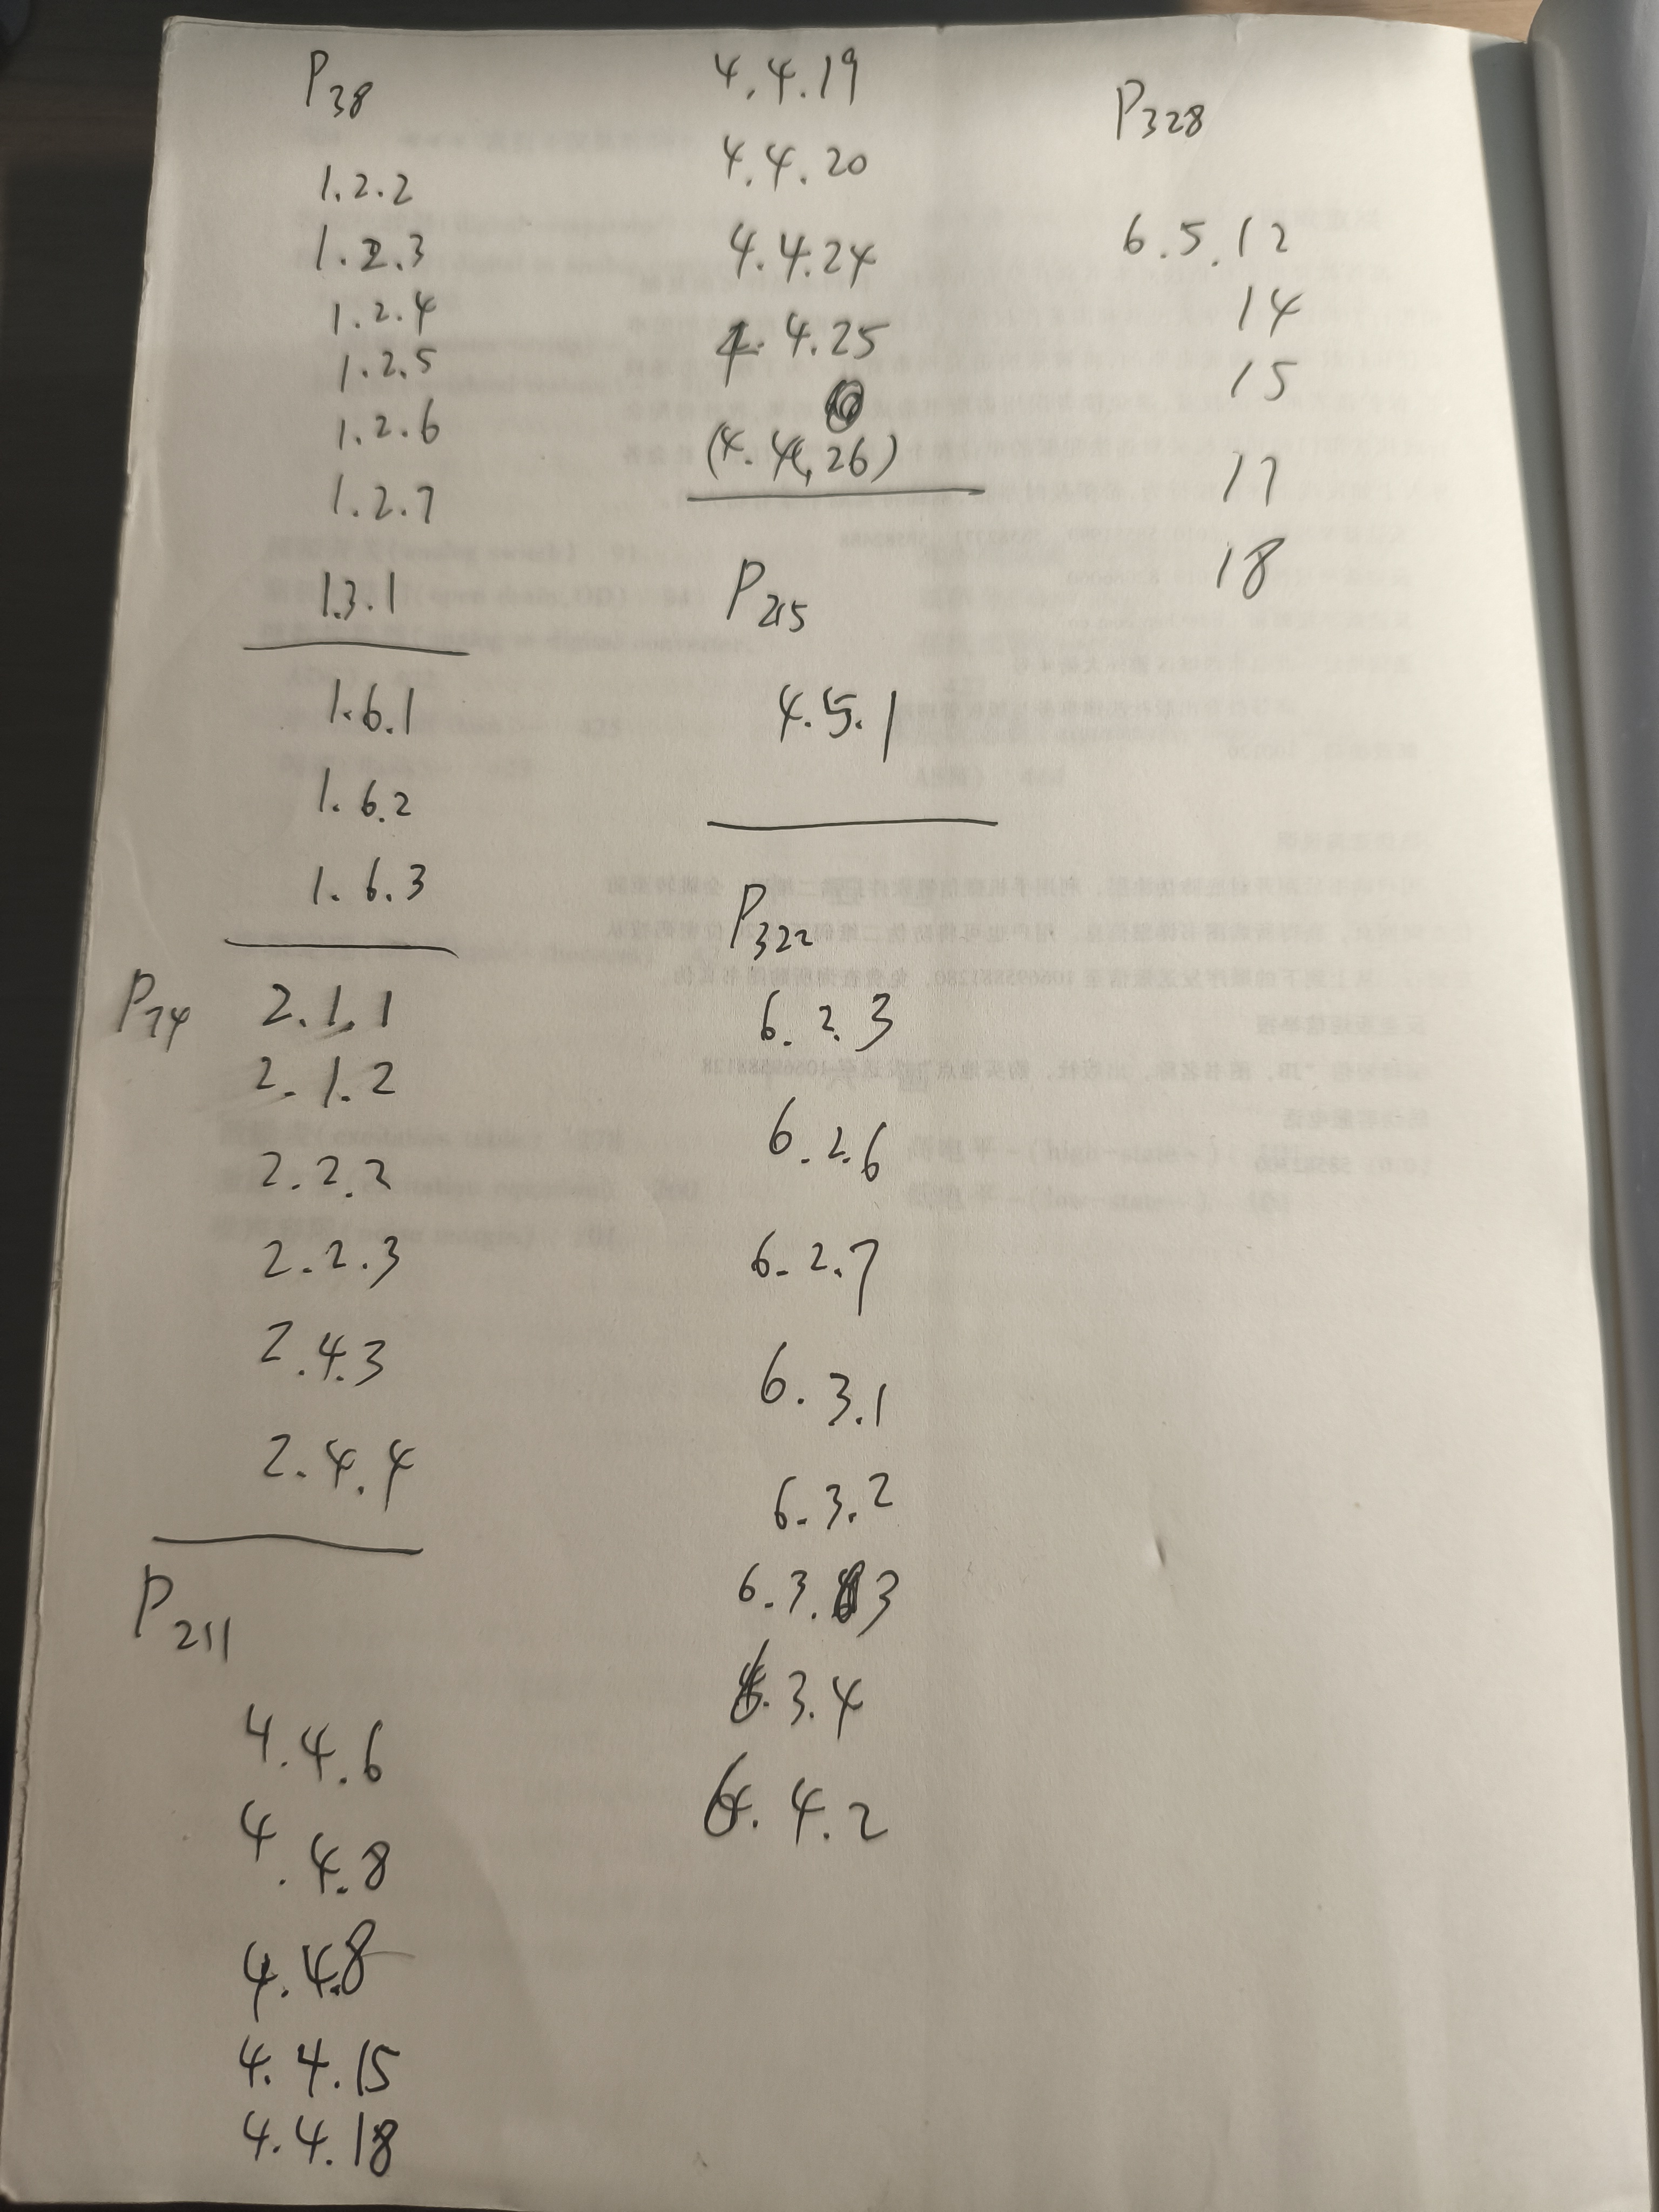 P38
1.2.2
1.2.3
1.2.4
1.2.5
1.2.6
1.2.7
1.3.1
1.6.1
1.6.2
1.6.3
P74
2.1.1
2.1.2
2.2.2
2.2.3
2.4.3
2.4.4
P211
4.4.6
4.4.8
4.4.8
4.4.15
4.4.18
4.4.19
4.4.20
4.4.24
4.4.25
(4.4.26)
P215
4.5.1
P322
6.2.3
6.2.6
6.2.7
6.3.1
6.3.2
6.3.3
6.3.4
6.4.2
P328
6.5.12
14
15
17
18